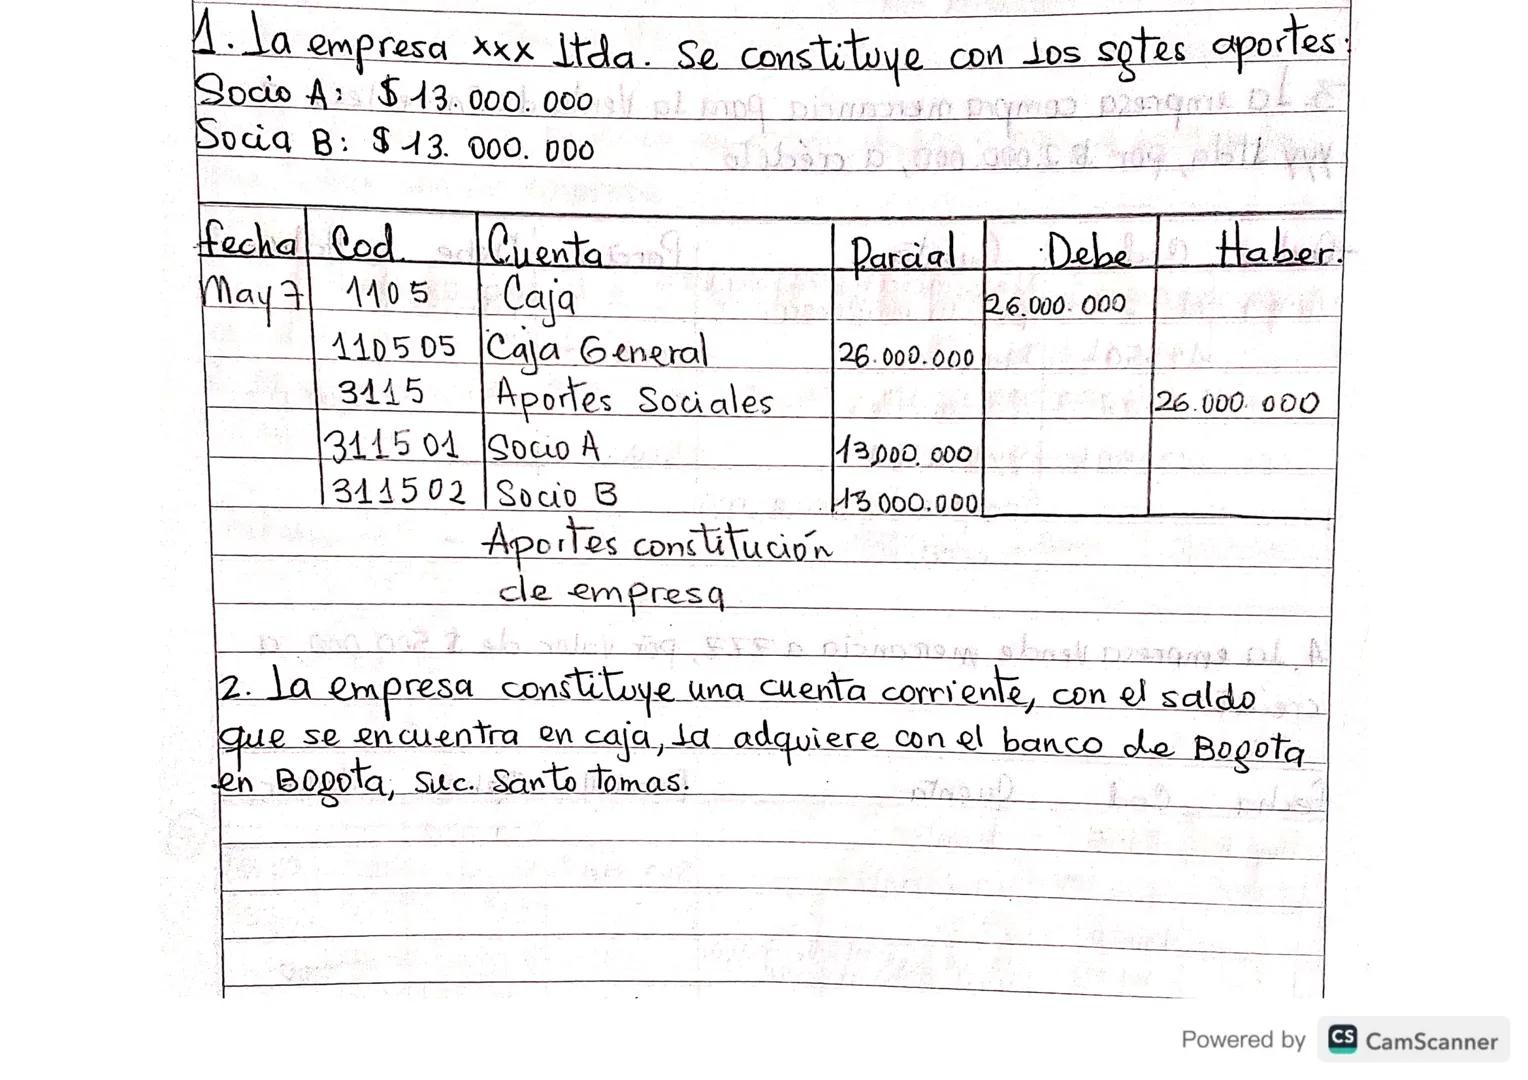 1. La empresa xxx Ltda. Se constituye con los sgtes aportes:
Socio A: $ 13.000.000
Socia B: $ 13.000.000
fecha Cod. Cuenta Parcial Debe Haber.
May 7 1105 Caja 26.000.000
110505 Caja General 26.000.000
3115 Aportes Sociales 26.000.000
311501 Socio A 13,000.000
311502 Socio B 13000.000
Aportes constitución
de empresa
2. La empresa constituye una cuenta corriente, con el saldo
que se encuentra en caja, la adquiere con el banco de Bogota
en Bogota, suc. Santo tomas.
Powered by CS CamScanner